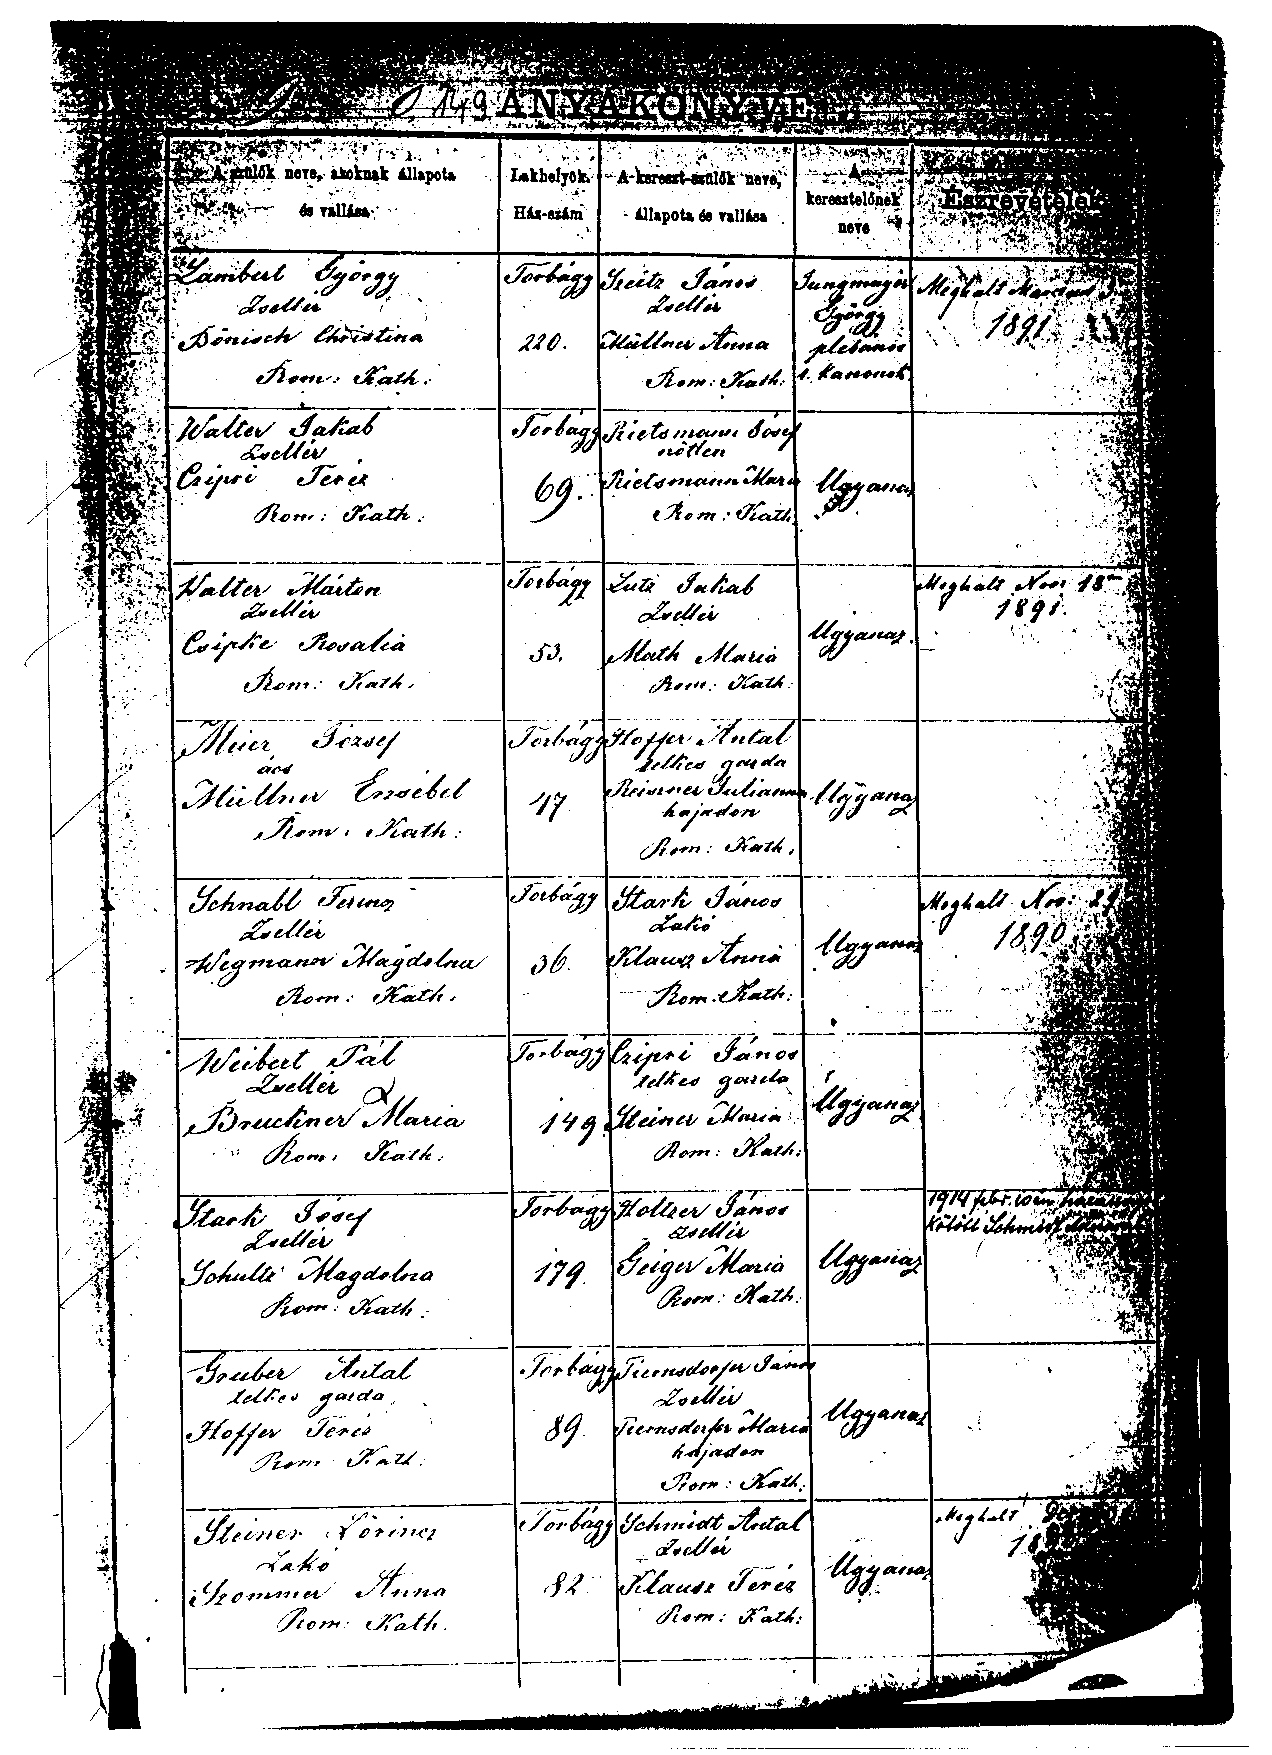 149 ANYAKÖNYVE
A szülők neve, azoknak állapota
és vallása
Lakhelyök.
Ház-szám
A kereszt-szülők neve,
állapota és vallása
A
keresztelőnek
neve
Észrevételek
Lambert György
Zsellér
Bönisch Christina
Rom: Kath:
Torbágy
220.
Szeitz János
Zsellér
Müllner Anna
Rom: Kath:
Jungmayer
György
plebános
t. kanonok
Meghalt Marcius
1891.
Walter Jakab
Zsellér
Czipri Teréz
Rom: Kath:
Torbágy
69.
Rietsmann Jósef
nőtlen
Rietsmann Maria
Rom: Kath
Ugyanaz
Walter Márton
Zsellér
Csipke Rosalia
Rom: Kath.
Torbágy
53.
Lutz Jakab
Zsellér
Math Maria
Rom: Kath:
Ugyanaz.
Meghalt Nov. 18
1891.
Meier József
ács
Müllner Ersébet
Rom: Kath:
Torbágy
47
Hoffer Antal
telkes gazda
Reisner Julianna
hajadon
Rom: Kath.
Ugyanaz
Schnabl Ferencz
Zsellér
Wegmann Magdolna
Rom: Kath.
Torbágy
36.
Stark János
Lakó
Klausz Anna
Rom: Kath:
Ugyanaz
Meghalt Nov: 29
1890
Weibert Pál
Zsellér
Bruckner Maria
Rom: Kath:
Torbágy
149.
Czipri János
telkes gazda
Steiner Maria
Rom: Kath:
Ugyanaz
Stark Jósef
Zsellér
Schultz Magdolna
Rom: Kath:
Torbágy
179.
Holtzer János
Zsellér
Geiger Maria
Rom: Kath:
Ugyanaz
1914 febr. 10én
kötött Schmidt
Gruber Antal
telkes gazda
Hoffer Teréz
Rom Kath:
Torbágy
89.
Tiernsdorfer János
Zsellér
Tiernsdorfer Maria
hajadon
Rom: Kath:
Ugyanaz
Steiner Lőrincz
Lakó
Szommer Anna
Rom: Kath.
Torbágy
82
Schmidt Antal
Zsellér
Klausz Teréz
Rom: Kath:
Ugyanaz
Meghalt